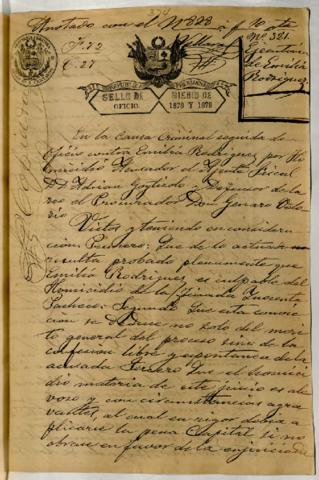 Anotado con el N° 328
f° 72
C. 27
N° 381.
Ejecutoria
de Emilia
Rodriguez
SELLO DE OFICIO.
BIENIO DE 1878 Y 1879
En la causa criminal seguida de
oficio contra Emilia Rodriguez por Ho-
micidio Acusador el Agente Fiscal
D.D. Adrian y Defensor de la
reo el Procurador Don Genaro
Vistos y teniendo en considera-
cion: Primero: Que de lo actuado
resulta probado plenamente que
Emilia Rodriguez, es culpable del
Homicidio de la finada
Pacheco: Segundo Que esta convic-
cion se deduce no solo del meri-
to general del proceso sino de la
confesion libre y espontanea de la
acusada Tercero Que el homici-
dio materia de este juicio es ale-
voso y con circunstancias agra-
vantes, al cual en rigor debia a-
plicarse la pena Capital si no
obrase en favor de la enjuiciada